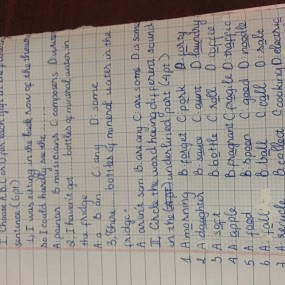 I. Choose A, B, C or D for each gap in the following
sentence (6pt)
1, I was sitting in the back row of the theatre
so I could hardly see the
A pantan B musicians C composers D
2, I haven't got bottles of mineral water in
the fridge
A. a B an C any D. some
3, There bottles of mineral water in the
fridge
A aren't son B are any C are some D is some
II Circle the word having different sound
in the underlined part (4pt)
1 A morning B forget C pork D
2 A daughter B sauce C aunt D laundry
3 A sofa B bottle C roll D coffee
4 A apple B fragrant C D traffic
5 A food B spoon C good D noodle
6 A fall B ball C call D salt
7 A B collect C cooking D electric